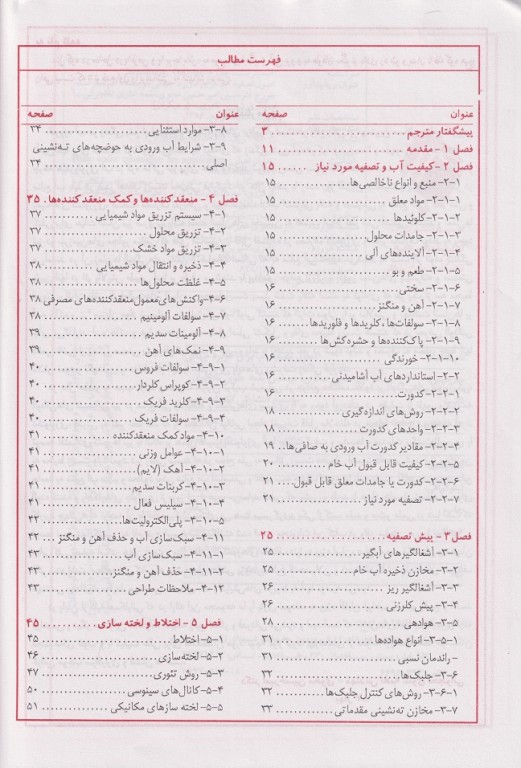 فهرست مطالب
عنوان صفحه
پیشگفتار مترجم ۳
فصل ۱ - مقدمه ۱۱
فصل ۲ - کیفیت آب و تصفیه مورد نیاز ۱۵
۲-۱- منبع و انواع ناخالصی‌ها ۱۵
۲-۱-۱- مواد معلق ۱۵
۲-۱-۲- کلوئیدها ۱۵
۲-۱-۳- جامدات محلول ۱۵
۲-۱-۴- آلاینده‌های آلی ۱۵
۲-۱-۵- طعم و بو ۱۵
۲-۱-۶- سختی ۱۶
۲-۱-۷- آهن و منگنز ۱۶
۲-۱-۸- سولفات‌ها، کلریدها و فلوریدها ۱۶
۲-۱-۹- پاک‌کننده‌ها و حشره‌کش‌ها ۱۶
۲-۱-۱۰- خورندگی ۱۶
۲-۲- استانداردهای آب آشامیدنی ۱۶
۲-۲-۱- کدورت ۱۶
۲-۲-۲- روش‌های اندازه‌گیری ۱۸
۲-۲-۳- واحدهای کدورت ۱۸
۲-۲-۴- مقادیر کدورت آب ورودی به صافی‌ها ۱۹
۲-۲-۵- کیفیت قابل قبول آب خام ۲۰
۲-۲-۶- کدورت یا جامدات معلق قابل قبول ۲۱
۲-۲-۷- تصفیه مورد نیاز ۲۱
فصل ۳ - پیش تصفیه ۲۵
۳-۱- آشغالگیرهای آبگیر ۲۵
۳-۲- مخازن ذخیره آب خام ۲۵
۳-۳- آشغالگیر ریز ۲۶
۳-۴- پیش کلرزنی ۲۶
۳-۵- هوادهی ۲۸
۳-۵-۱- انواع هواده‌ها ۳۱
- راندمان نسبی ۳۱
۳-۶- جلبک‌ها ۳۲
۳-۶-۱- روش‌های کنترل جلبک‌ها ۳۲
۳-۷- مخازن ته‌نشینی مقدماتی ۳۳
عنوان صفحه
۳-۸- موارد استثنایی ۳۴
۳-۹- شرایط آب ورودی به حوضچه‌های ته‌نشینی
اصلی ۳۴
فصل ۴ - منعقدکننده‌ها و کمک منعقدکننده‌ها ۳۵
۴-۱- سیستم تزریق مواد شیمیایی ۳۷
۴-۲- تزریق محلول ۳۷
۴-۳- تزریق مواد خشک ۳۷
۴-۴- ذخیره و انتقال مواد شیمیایی ۳۸
۴-۵- غلظت محلول‌ها ۳۸
۴-۶- واکنش‌های معمول منعقدکننده‌های مصرفی ۳۸
۴-۷- سولفات آلومینیم ۳۸
۴-۸- آلومینات سدیم ۳۹
۴-۹- نمک‌های آهن ۳۹
۴-۹-۱- سولفات فروس ۴۰
۴-۹-۲- کوپراس کلردار ۴۰
۴-۹-۳- کلرید فریک ۴۰
۴-۹-۴- سولفات فریک ۴۰
۴-۱۰- مواد کمک منعقدکننده ۴۱
۴-۱۰-۱- عوامل وزنی ۴۱
۴-۱۰-۲- آهک (لایم) ۴۱
۴-۱۰-۳- کربنات سدیم ۴۱
۴-۱۰-۴- سیلیس فعال ۴۱
۴-۱۰-۵- پلی‌الکترولیت‌ها ۴۲
۴-۱۱- سبک‌سازی آب و حذف آهن و منگنز ۴۲
۴-۱۱-۱- سبک‌سازی آب ۴۳
۴-۱۱-۲- حذف آهن و منگنز ۴۳
۴-۱۲- ملاحظات طراحی ۴۳
فصل ۵ - اختلاط و لخته سازی ۴۵
۵-۱- اختلاط ۴۵
۵-۲- لخته‌سازی ۴۶
۵-۳- روش تئوری ۴۷
۵-۴- کانال‌های سینوسی ۵۰
۵-۵- لخته سازهای مکانیکی ۵۱